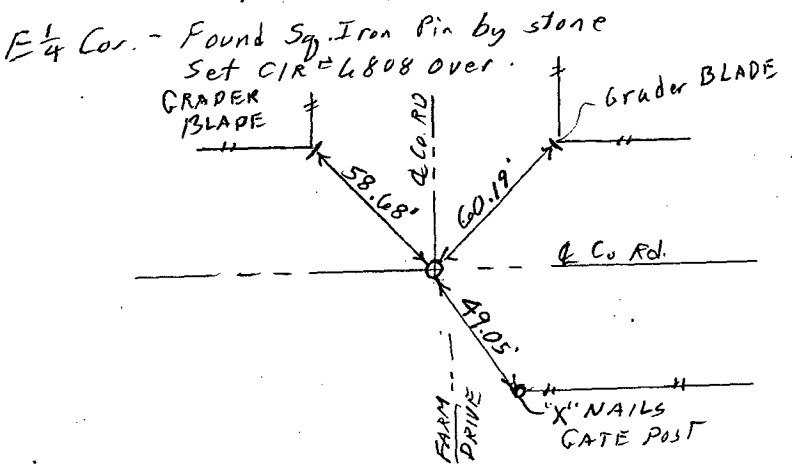 E 1/4 Cor. - Found Sq. Iron Pin by stone
Set C/R #6808 over.
GRADER
BLADE
℄ Co. RD
Grader BLADE
58.68'
60.19'
℄ Co Rd.
49.05'
FARM
DRIVE
"X" NAILS
GATE POST